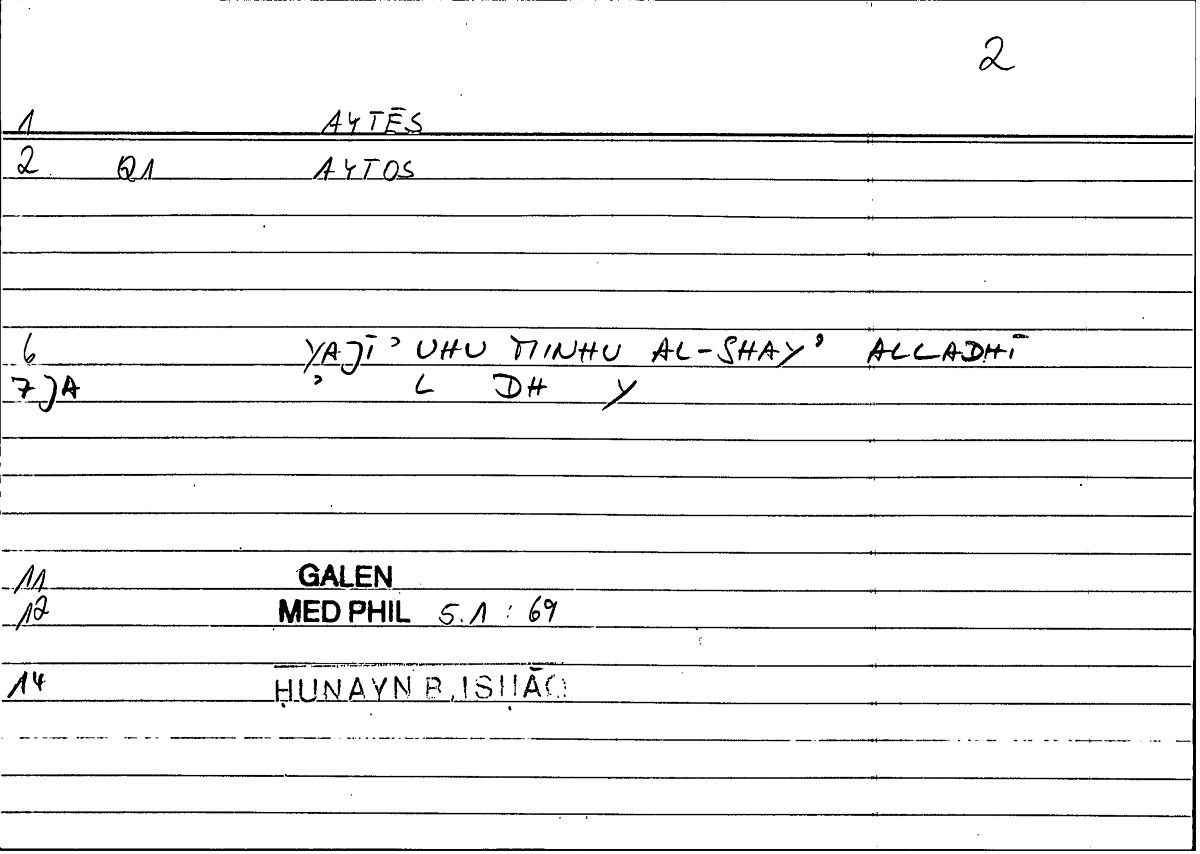 2
1 AYTĒS
2 Q1 AYTOS
6 YAJĪʾUHU MINHU AL-SHAYʾ ALLADHĪ
7 JA ʾ L DH Y
11 GALEN
12 MED PHIL 5.1 : 69
14 ḤUNAYN B. ISḤĀQ